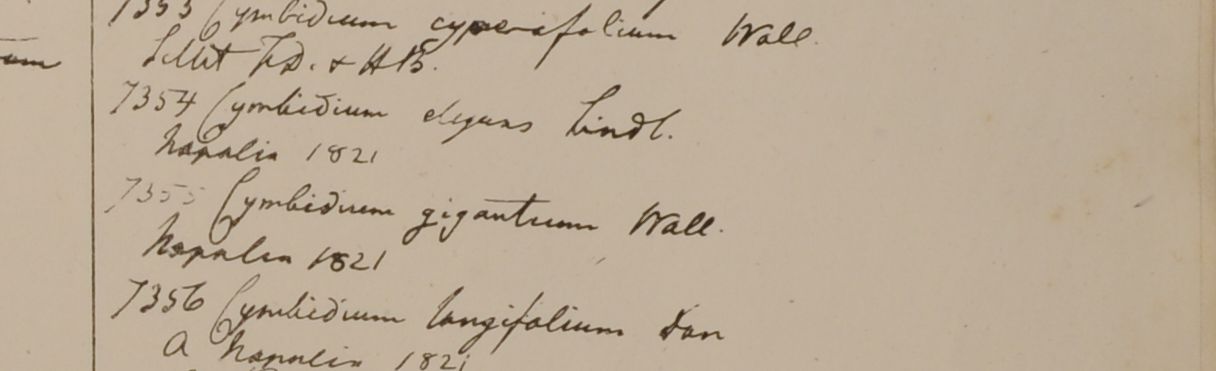 um
7353 Cymbidium cyperifolium Wall.
Sillet F.D. & HB.
7354 Cymbidium elegans Lindl.
Napalia 1821
7355 Cymbidium giganteum Wall.
Napalia 1821
7356 Cymbidium longifolium Don
a Napalia 1821